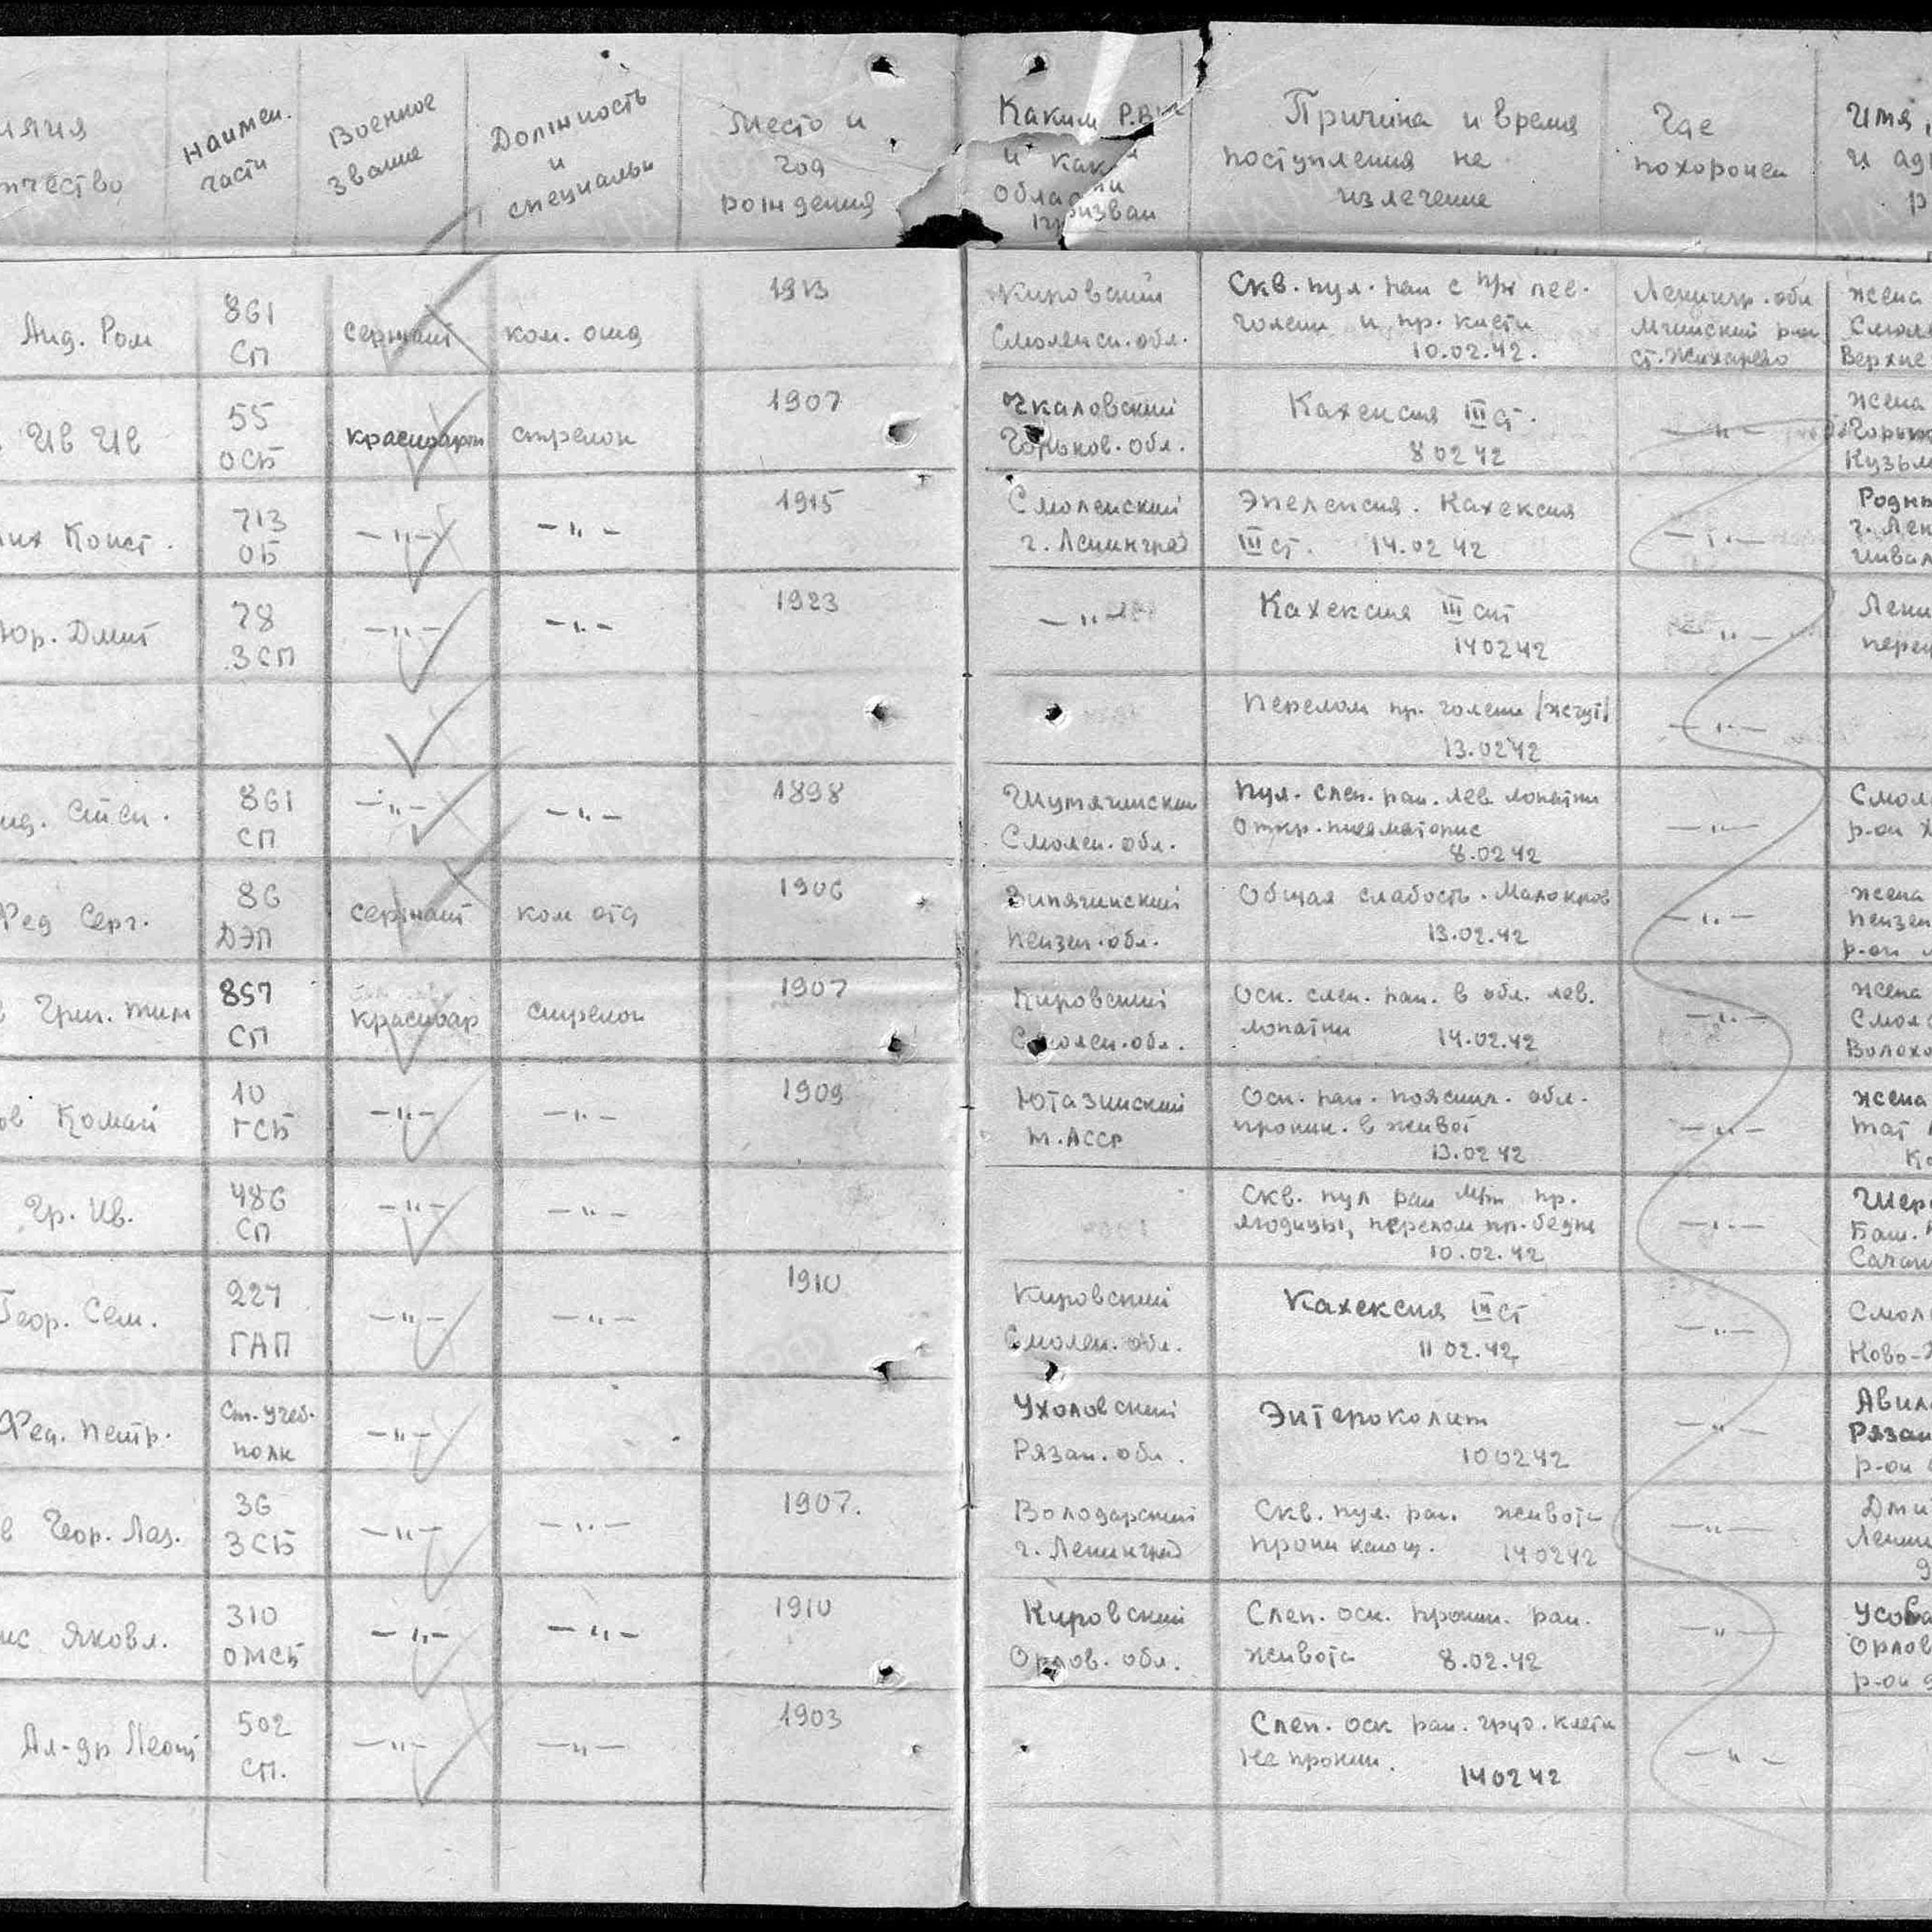 Наимен.
части
Военное
звание
Должность
и
специальн
Место и
год
рождения
Каким Р.В
и как
области
призван
Причина и время
поступления на
излечение
Где
похоронен
Имя,
Анд. Ром
861
СП
сержант
ком. отд
1913
Кировский
Смоленск. обл.
Скв. пул. ран с п/к лев.
голени и пр. кисти
10.02.42.
Ленингр. обл
Мгинский р-он
ст. Жихарево
жена
Верхне
Ив Ив
55
ОСБ
красноарм
стрелок
1907
Чкаловский
Горьков. обл.
Кахексия III ст.
8 02 42
— " —
жена
Горьк
Кузьм
Конст.
713
ОБ
— " —
— " —
1915
Смоленский
г. Ленинград
Эпелепсия. Кахексия
III ст. 14.02 42
— " —
Родны
г. Лен
Юр. Дмит
78
ЗСП
— " —
— " —
1923
— " —
Кахексия III ст
14 02 42
— " —
Лени
Перелом пр. голени /жгут/
13.02 42
— " —
861
СП
— " —
— " —
1898
Шумячинский
Смолен. обл.
Пул. слеп. ран. лев лопатки
Откр. пневматорис
8.02 42
— " —
Смол
р-он Х
Фед Серг.
86
ДЭП
сержант
ком отд
1906
Пензен. обл.
Общая слабость. Малокров
13.02.42
— " —
жена
Пензен
р-он
Григ. Тим
857
СП
красноар
стрелок
1907
Кировский
Смолен. обл.
Оск. слеп. ран. в обл. лев.
лопатки 14.02.42
— " —
жена
Смол
Волохо
ов Комай
10
ГСБ
— " —
— " —
1909
Ютазинский
Т. АССР
Оск. ран. пояснич. обл.
проник. в живот
13.02 42
— " —
жена
Тат
Гр. Ив.
486
СП
— " —
— " —
Скв. пул ран м/т пр.
ягодицы, перелом пр. бедра
10.02.42
— " —
Баш.
Геор. Сем.
227
ГАП
— " —
— " —
1910
Кировский
Смолен. обл.
Кахексия III ст
11 02.42
— " —
Смол
Ново-
Фед. Петр.
Ст. учеб.
полк
— " —
Ухоловский
Рязан. обл.
Энтероколит
10 02 42
— " —
Авил
Рязан
р-он
в Геор. Лаз.
36
ЗСБ
— " —
— " —
1907.
Володарский
г. Ленинград
Скв. пул. ран. живота
проникающ. 14 02 42
— " —
Дми
Ленин
Яковл.
310
ОМСБ
— " —
— " —
1910
Кировский
Орлов. обл.
Слеп. оск. проник. ран.
живота 8.02.42
— " —
Усова
Орлов
р-он д
Ал-др Леонт
502
СП.
— " —
— " —
1903
Слеп. оск ран. груд. клетк
не проник. 14 02 42
— " —